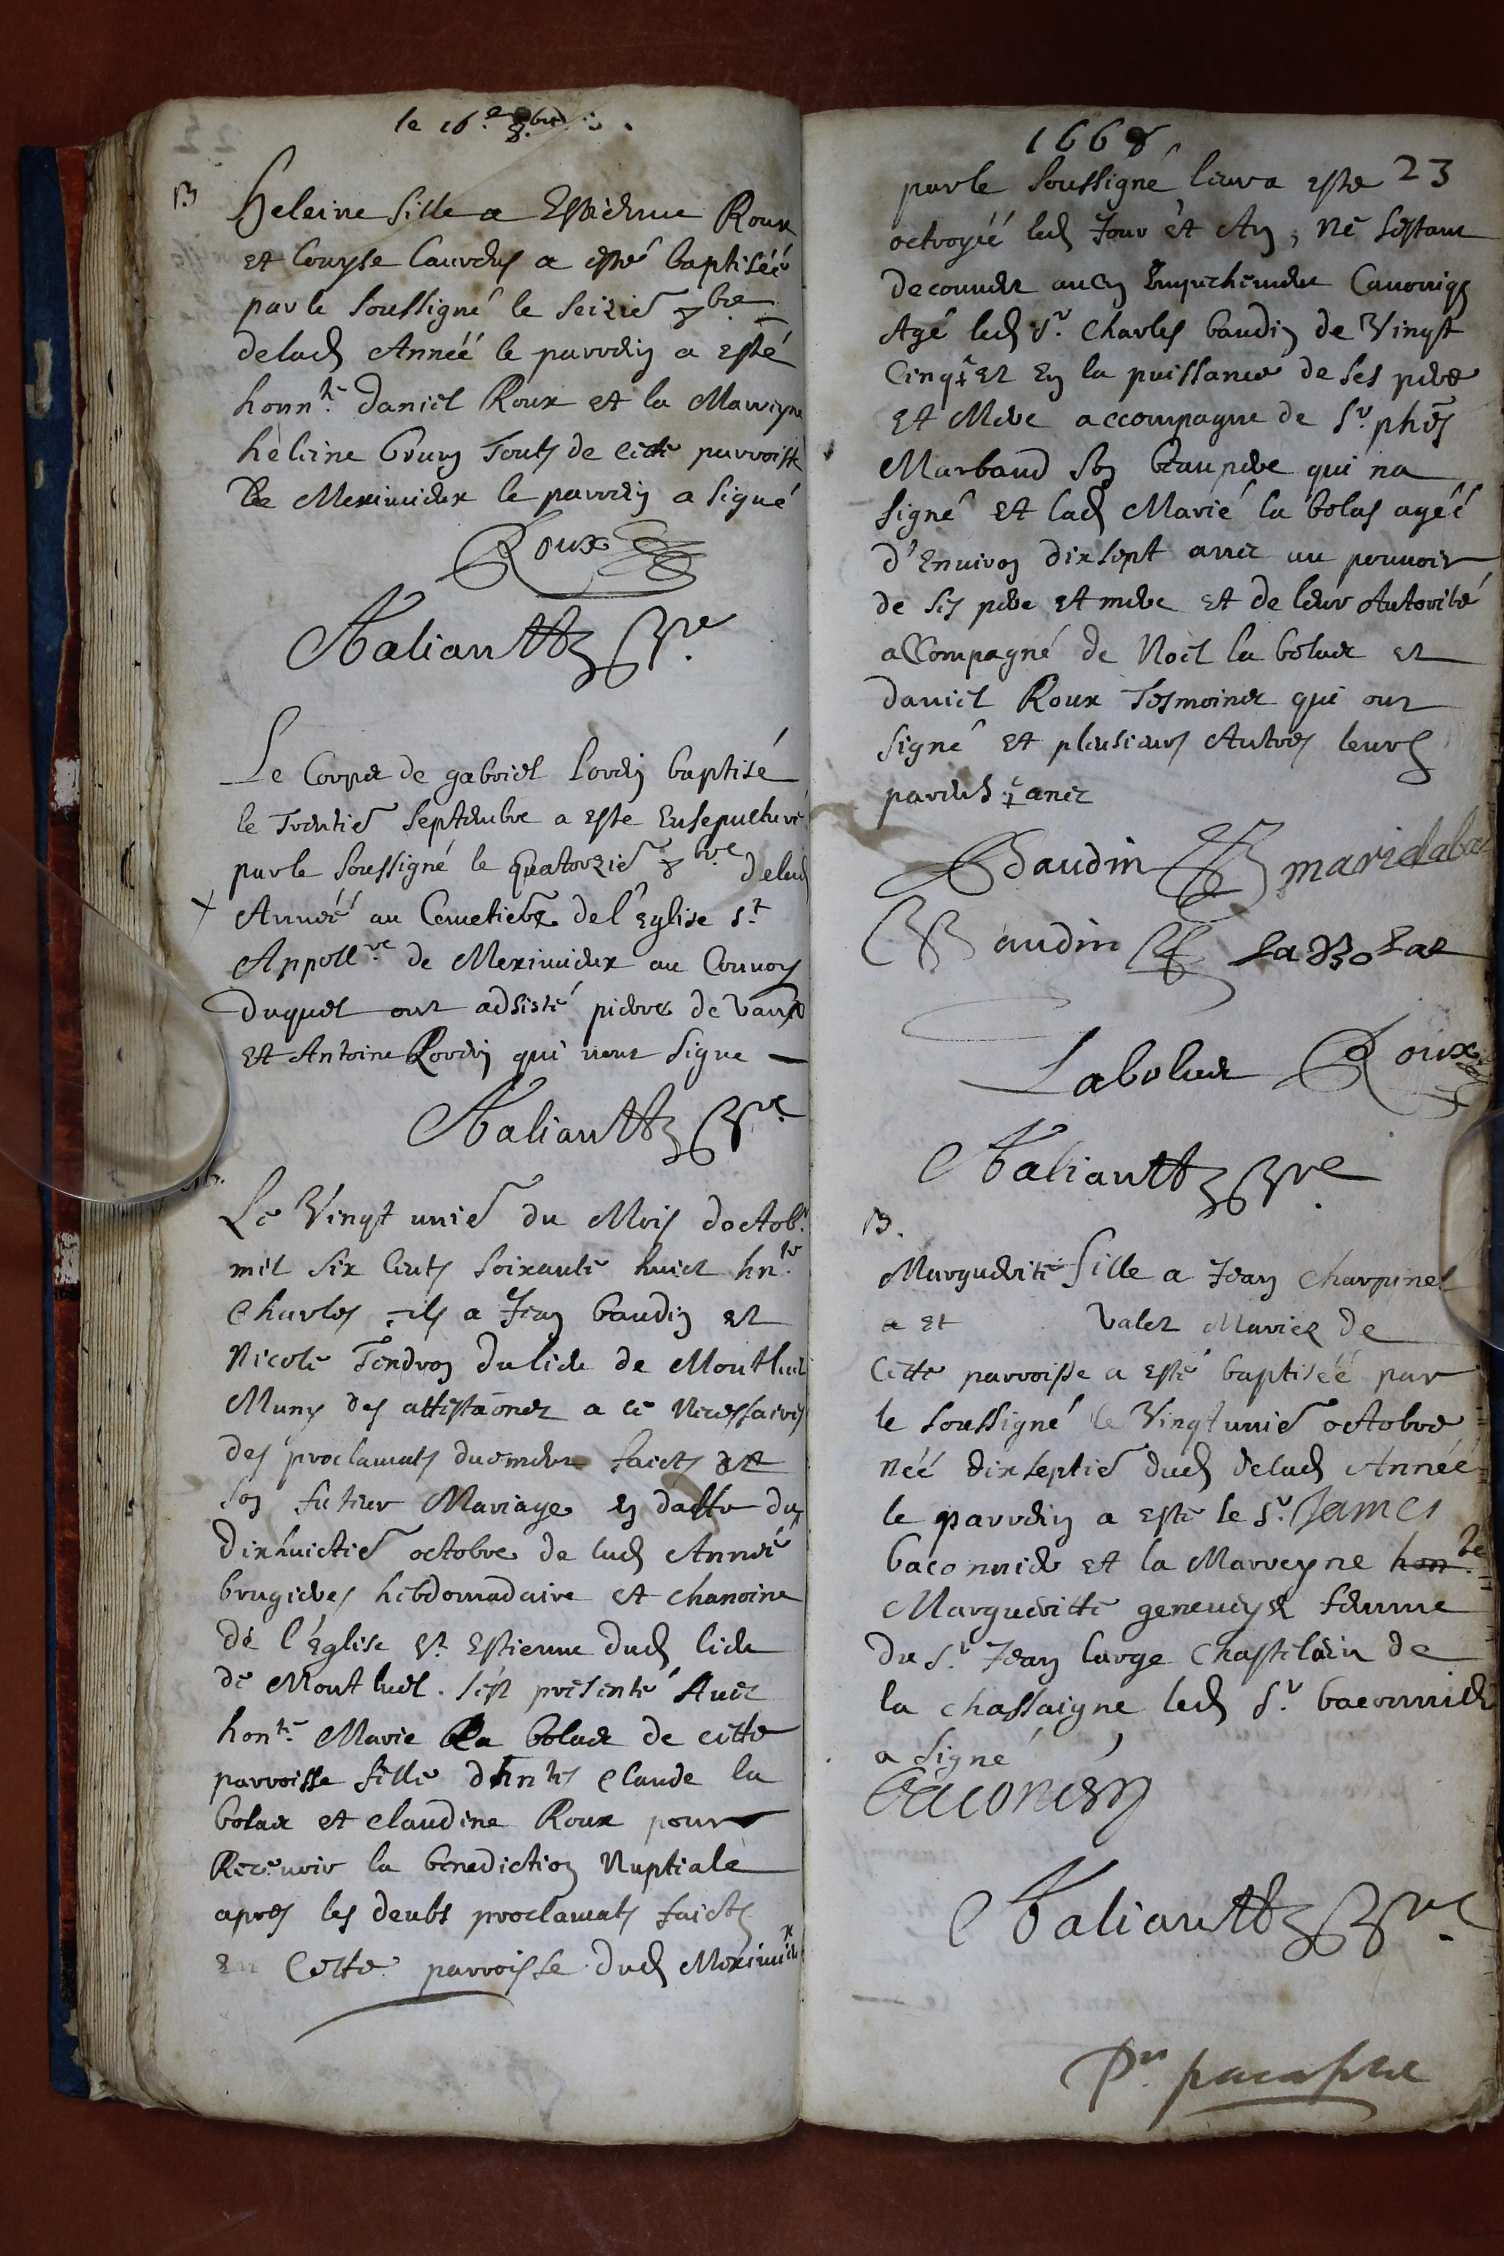 le 16.e 8.bre
B
Heleine fille a Estienne Roux
et Louyse Caurdus a esté baptiséé
par le soussigné le seizie 8bre
delad Annéé le parrein a esté
honn.te daniel Roux et la Marreyne
heleine brun Touts de cette parroisse
de Meximieux le parrein a signé
Roux
Pbre.
Le Corps de gabriel Rovein baptisé
le Trentie Septembre a este Ensepulturé
par le soussigné le Quatorzie 8bre delad
Annéé au Cemetiere de l'Eglise St
Appoll.re de Meximieux au Convoy
duquel ont adsisté pierre de vaux
et Antoine Rovein qui nont signe
Pbre.
Le Vingt unie du Mois doctob.
mil six Cents soixante huict hn.te
Charles fils a Jean baudin et
Nicole Tendron du lieu de Montluel
Muny des attestaones a ce Necessaires
des proclamats duement faicts
son futeur Mariage en datte du
dixhuictie octobre de lad Annéé
brugieres hebdomadaire et chanoine
de l'église St Estienne dud lieu
de Montluel. sest presenté Avec
hon.te Marie la bolas de cette
parroisse fille d'hnts Claude la
bolas et Claudine Roux pour
Recevoir la benediction Nuptiale
apres les deubs proclamats faicts
en Cette parroisse dud Meximieux
1668
23
par le soussigné leur a este
octroyéé led Jour et An, Ne sestant
decouvert aucun Empechement Canoniq
Agé led Sr. Charles baudin de Vingt
Cinq et en la puissance de ses pere
et Mere accompagne de Sr. phes
Marbaud son beaupere qui na
signé et lad Marié la bolas agéé
d'Environ dixsept ans au pouvoir
de ses pere et mere et de leur Autorité
aCCompagné de Noel la bolas et
daniel Roux Tesmoins qui ont
signé et plusieurs Autres leurs
parents
Baudin marielabo
Baudin La Bolas
Labolas Roux
Pbre.
B.
Marguerite fille a Jean Charpinel
a et Valet Mariez de
Cette parroisse a esté baptiséé par
le soussigné le Vingt unie octobre
Néé dixseptie dud delad Annéé
le parrein a este le Sr. James
baconnier et la Marreyne hon.te
Margueritte femme
du Sr. Jean large Chastelain de
la chassaigne led Sr. baconnier
a signé
Baconier
Pbre.